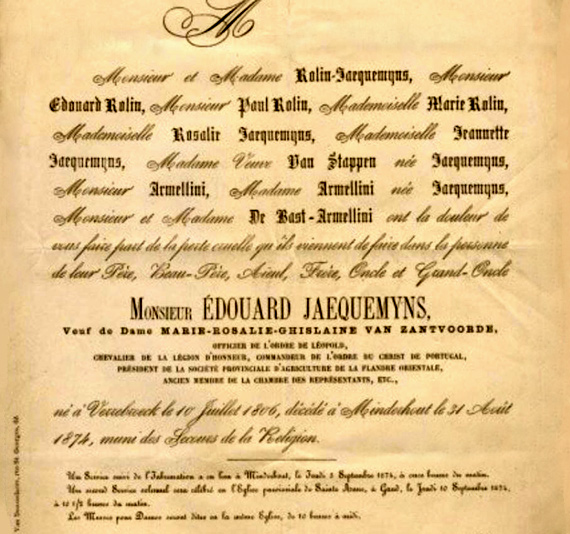 M
Monsieur et Madame Rolin-Jaequemyns, Monsieur
Edouard Rolin, Monsieur Paul Rolin, Mademoiselle Marie Rolin,
Mademoiselle Rosalie Jaequemyns, Mademoiselle Jeannette
Jaequemyns, Madame Veuve Van Stappen née Jaequemyns,
Monsieur Armellini, Madame Armellini née Jaequemyns,
Monsieur et Madame De Bast-Armellini ont la douleur de
vous faire part de la perte cruelle qu'ils viennent de faire dans la personne
de leur Père, Beau-Père, Aïeul, Frère, Oncle et Grand-Oncle
Monsieur ÉDOUARD JAEQUEMYNS,
Veuf de Dame MARIE-ROSALIE-GHISLAINE VAN ZANTVOORDE,
OFFICIER DE L'ORDRE DE LÉOPOLD,
CHEVALIER DE LA LÉGION D'HONNEUR, COMMANDEUR DE L'ORDRE DU CHRIST DE PORTUGAL,
PRÉSIDENT DE LA SOCIÉTÉ PROVINCIALE D'AGRICULTURE DE LA FLANDRE ORIENTALE,
ANCIEN MEMBRE DE LA CHAMBRE DES REPRÉSENTANTS, ETC.,
né à Verrebroeck le 10 Juillet 1806, décédé à Minderhout le 31 Août
1874, muni des Secours de la Religion.
Un Service suivi de l'Inhumation a eu lieu à Minderhout, le Jeudi 3 Septembre 1874, à onze heures du matin.
Un second Service solennel sera célébré en l'Eglise paroissiale de Sainte Anne, à Gand, le Jeudi 10 Septembre 1874,
à 10 1/2 heures du matin.
Les Messes pour Dames seront dites en la même Eglise, de 10 heures à midi.